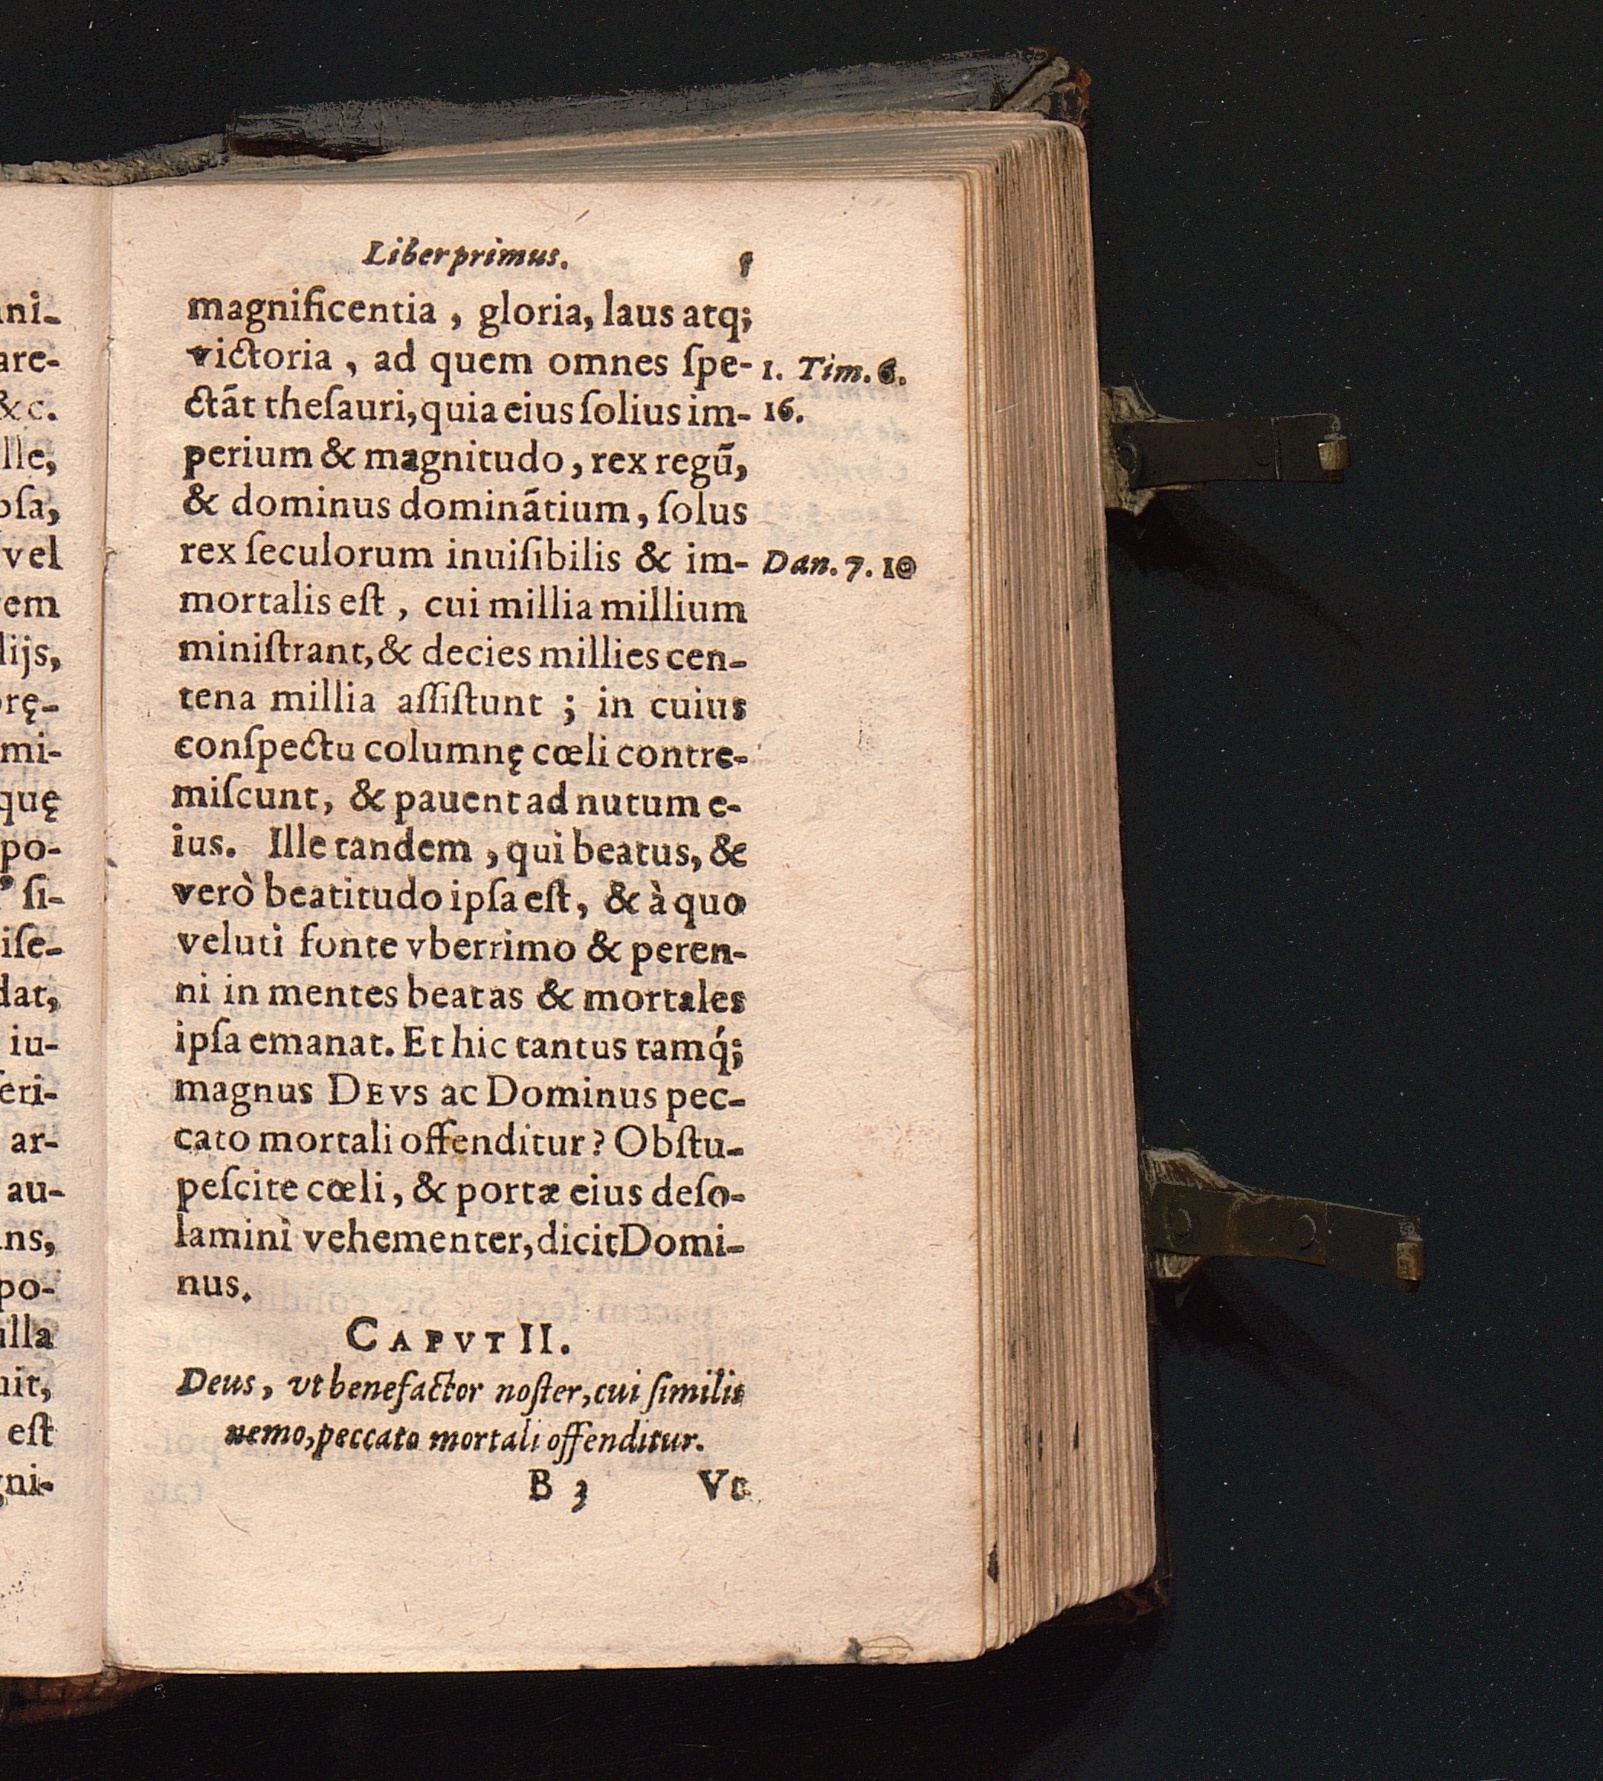 Liber primus.
magnificentia, gloria, laus atq;
victoria, ad quem omnes ſpe-
1. Tim. 6.
ctãt theſauri, quia eius ſolius im-
16.
perium & magnitudo, rex regũ,
& dominus dominãtium, ſolus
rex ſeculorum inuiſibilis & im-
Dan. 7. 10
mortalis eſt, cui millia millium
miniſtrant, & decies millies cen-
tena millia aſſiſtunt; in cuius
conſpectu columnę cœli contre-
miſcunt, & pauent ad nutum e-
ius. Ille tandem, qui beatus, &
verò beatitudo ipſa eſt, & à quo
veluti fonte vberrimo & peren-
ni in mentes beatas & mortales
ipſa emanat. Et hic tantus tamq́;
magnus DEVS ac Dominus pec-
cato mortali offenditur? Obſtu-
peſcite cœli, & portæ eius deſo-
lamini vehementer, dicit Domi-
nus.
CAPVT II.
Deus, vt benefactor noſter, cui ſimilis
nemo, peccato mortali offenditur.
B 3 Vt
ni-
are-
&c.
lle,
ſa,
vel
em
lijs,
rę-
mi-
quę
po-
ſi-
iſe-
dat,
iu-
eri-
ar-
au-
ns,
po-
illa
it,
eſt
ni-